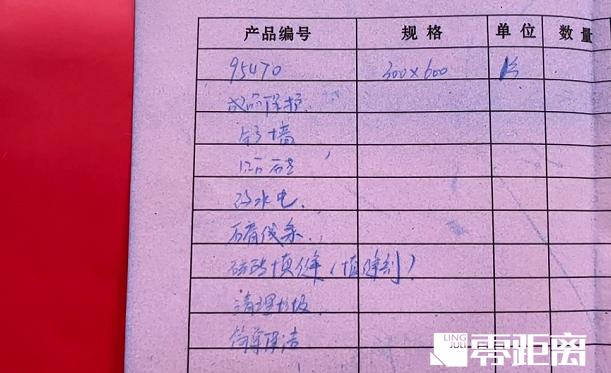 产品编号 规格 单位 数量
95470 300×600 片
成品保护
钌墙
冯水电.
石膏线条.
磁砖填缝(填缝剂)
清理垃圾
简单保洁
LING JULI 零距离